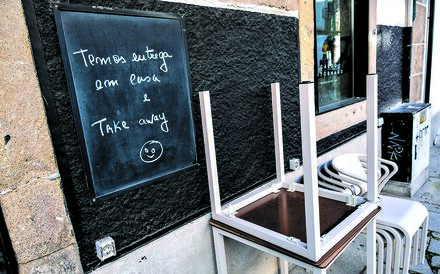 Temos entrega
em casa
e
Take away